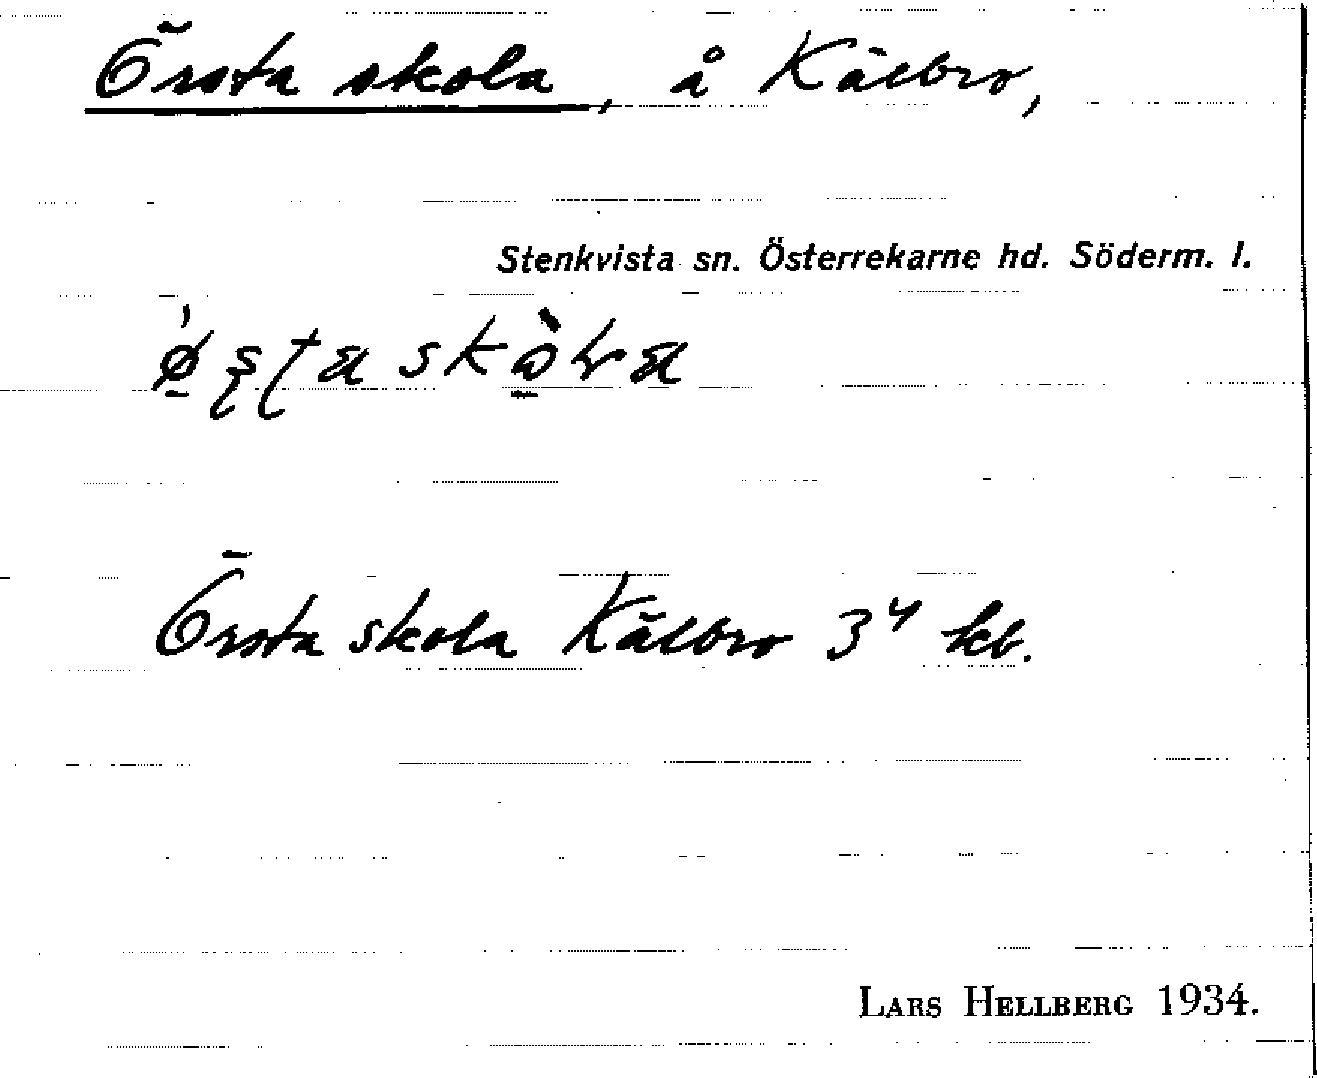 Örsta skola, å Källbro,
Stenkvista sn. Österrekarne hd. Söderm. l.
Örsta skola Källbro 3⁴ kb.
LARS HELLBERG 1934.